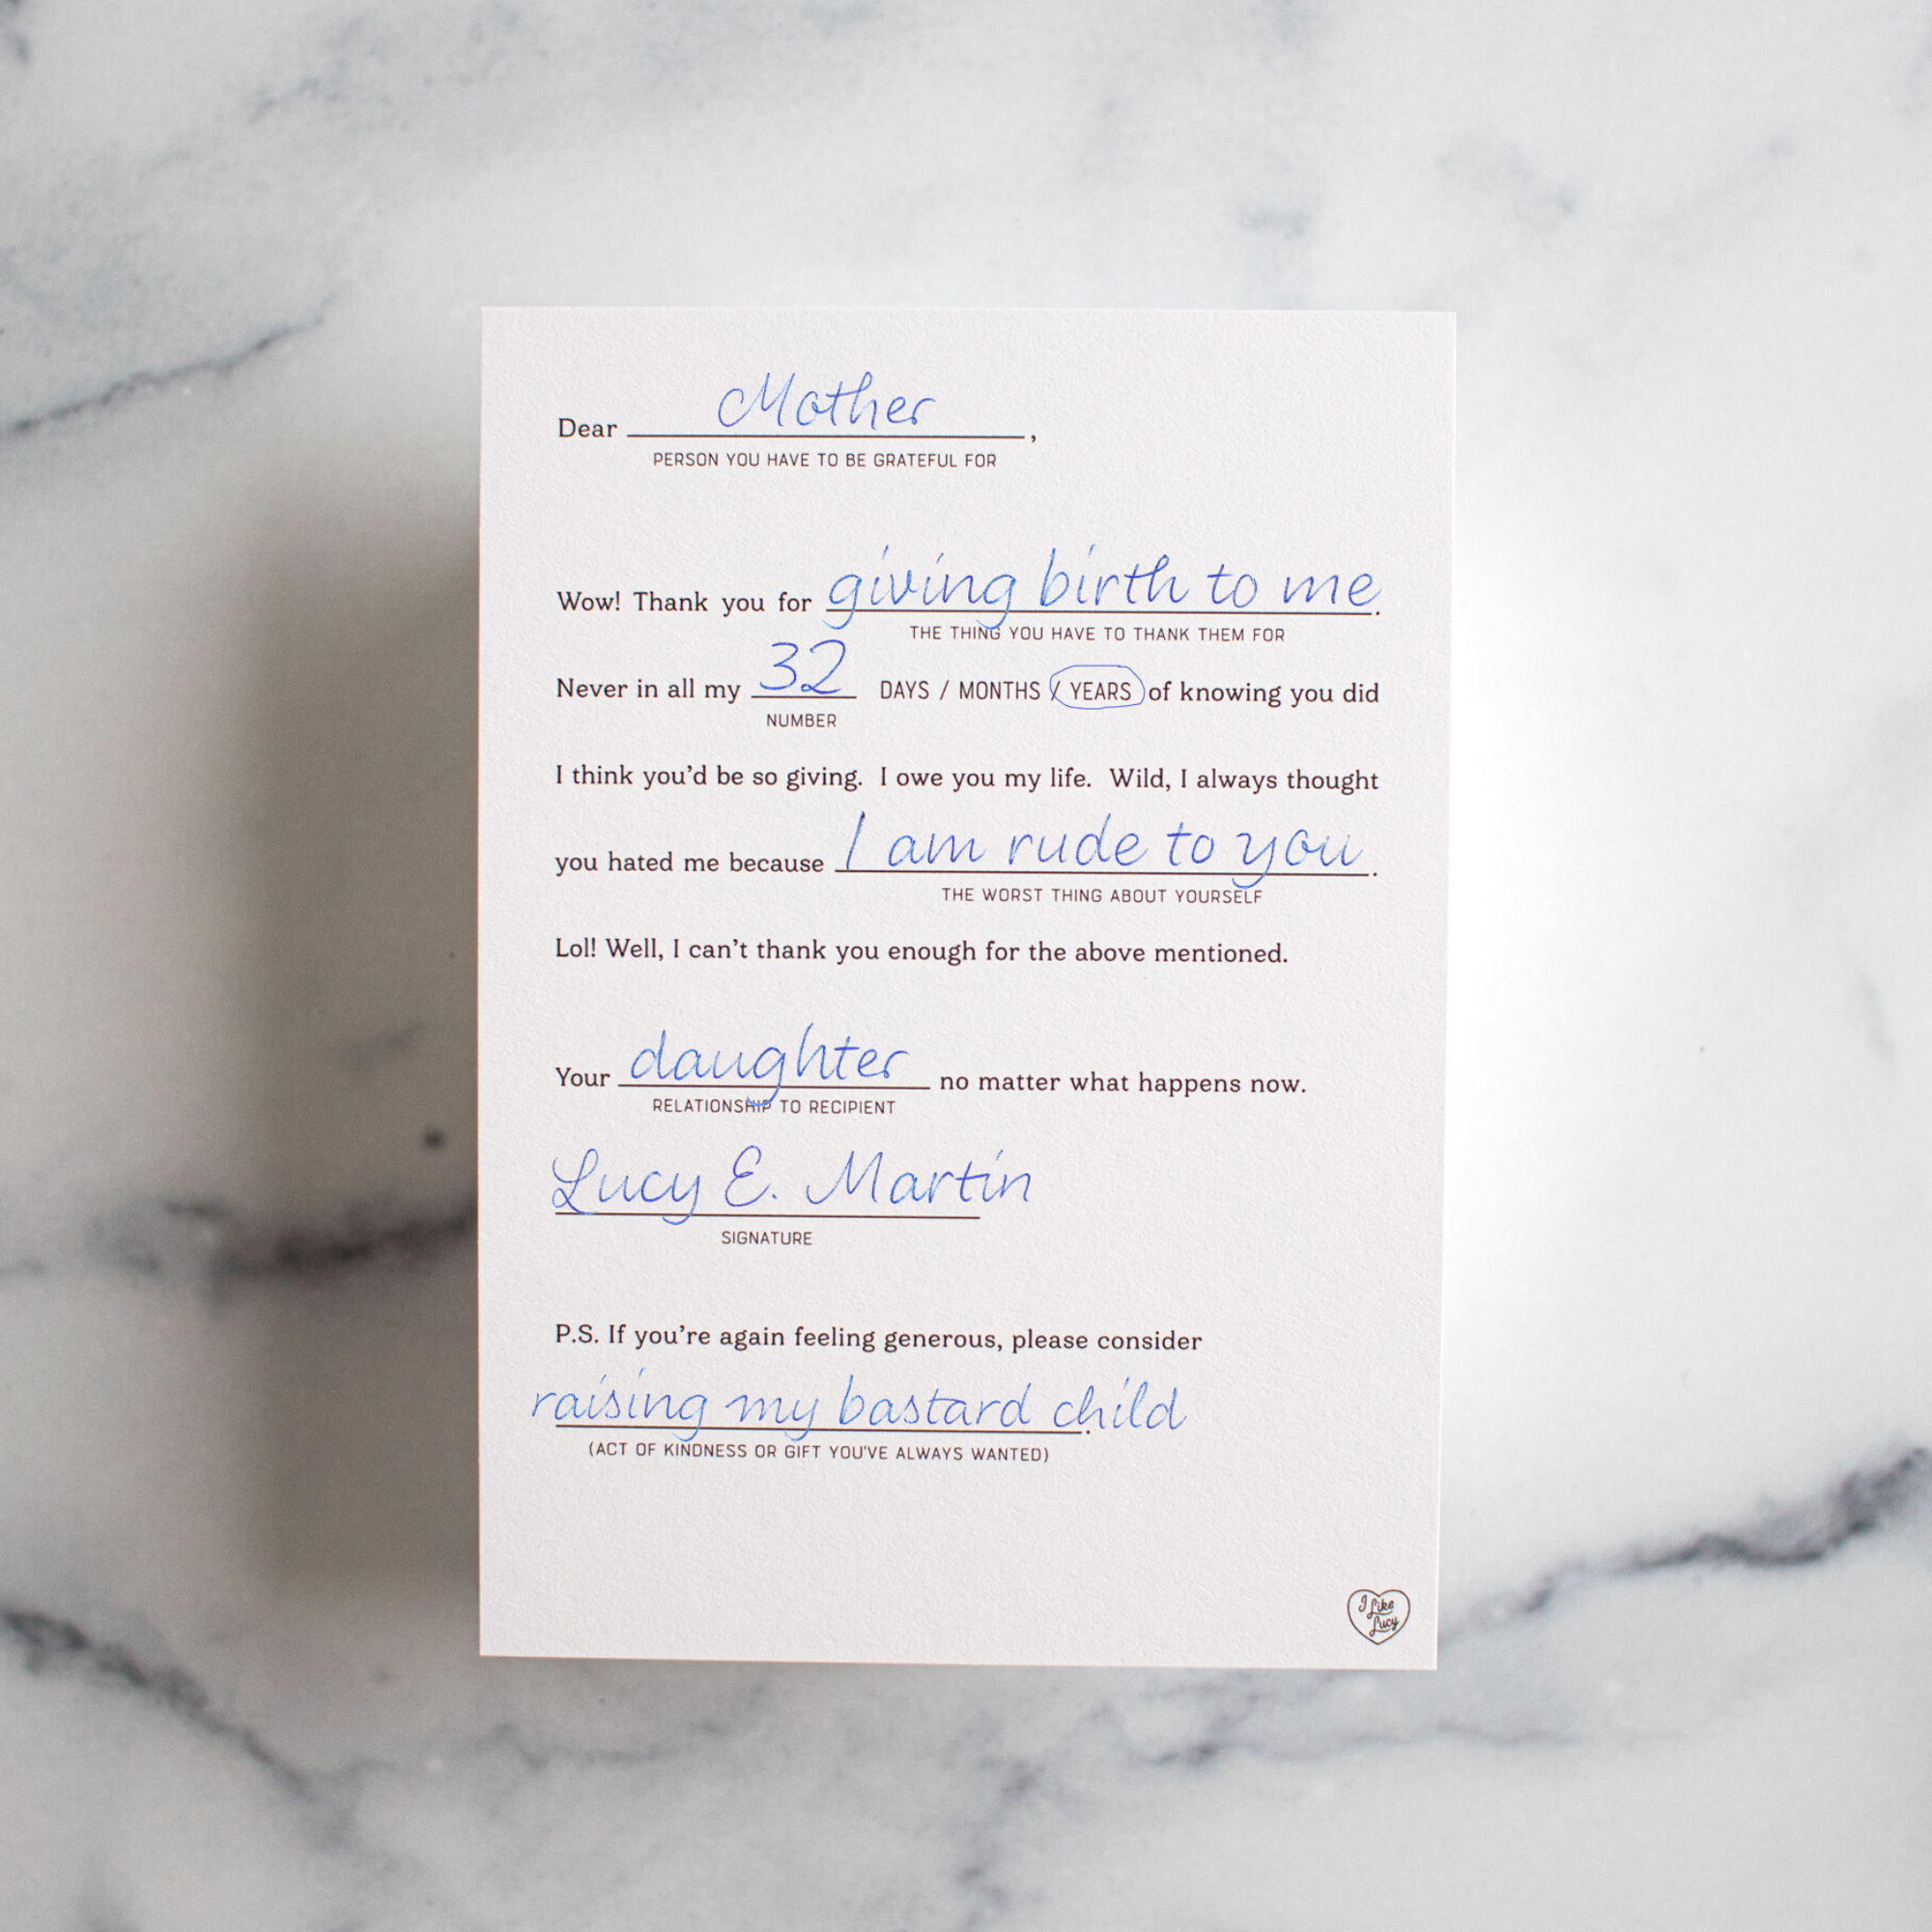 Dear Mother,
PERSON YOU HAVE TO BE GRATEFUL FOR
Wow! Thank you for giving birth to me.
THE THING YOU HAVE TO THANK THEM FOR
Never in all my 32 DAYS / MONTHS / YEARS of knowing you did
NUMBER
I think you'd be so giving. I owe you my life. Wild, I always thought
you hated me because I am rude to you.
THE WORST THING ABOUT YOURSELF
Lol! Well, I can't thank you enough for the above mentioned.
Your daughter no matter what happens now.
RELATIONSHIP TO RECIPIENT
Lucy E. Martin
SIGNATURE
P.S. If you're again feeling generous, please consider
raising my bastard child.
(ACT OF KINDNESS OR GIFT YOU'VE ALWAYS WANTED)
I Like
Lucy